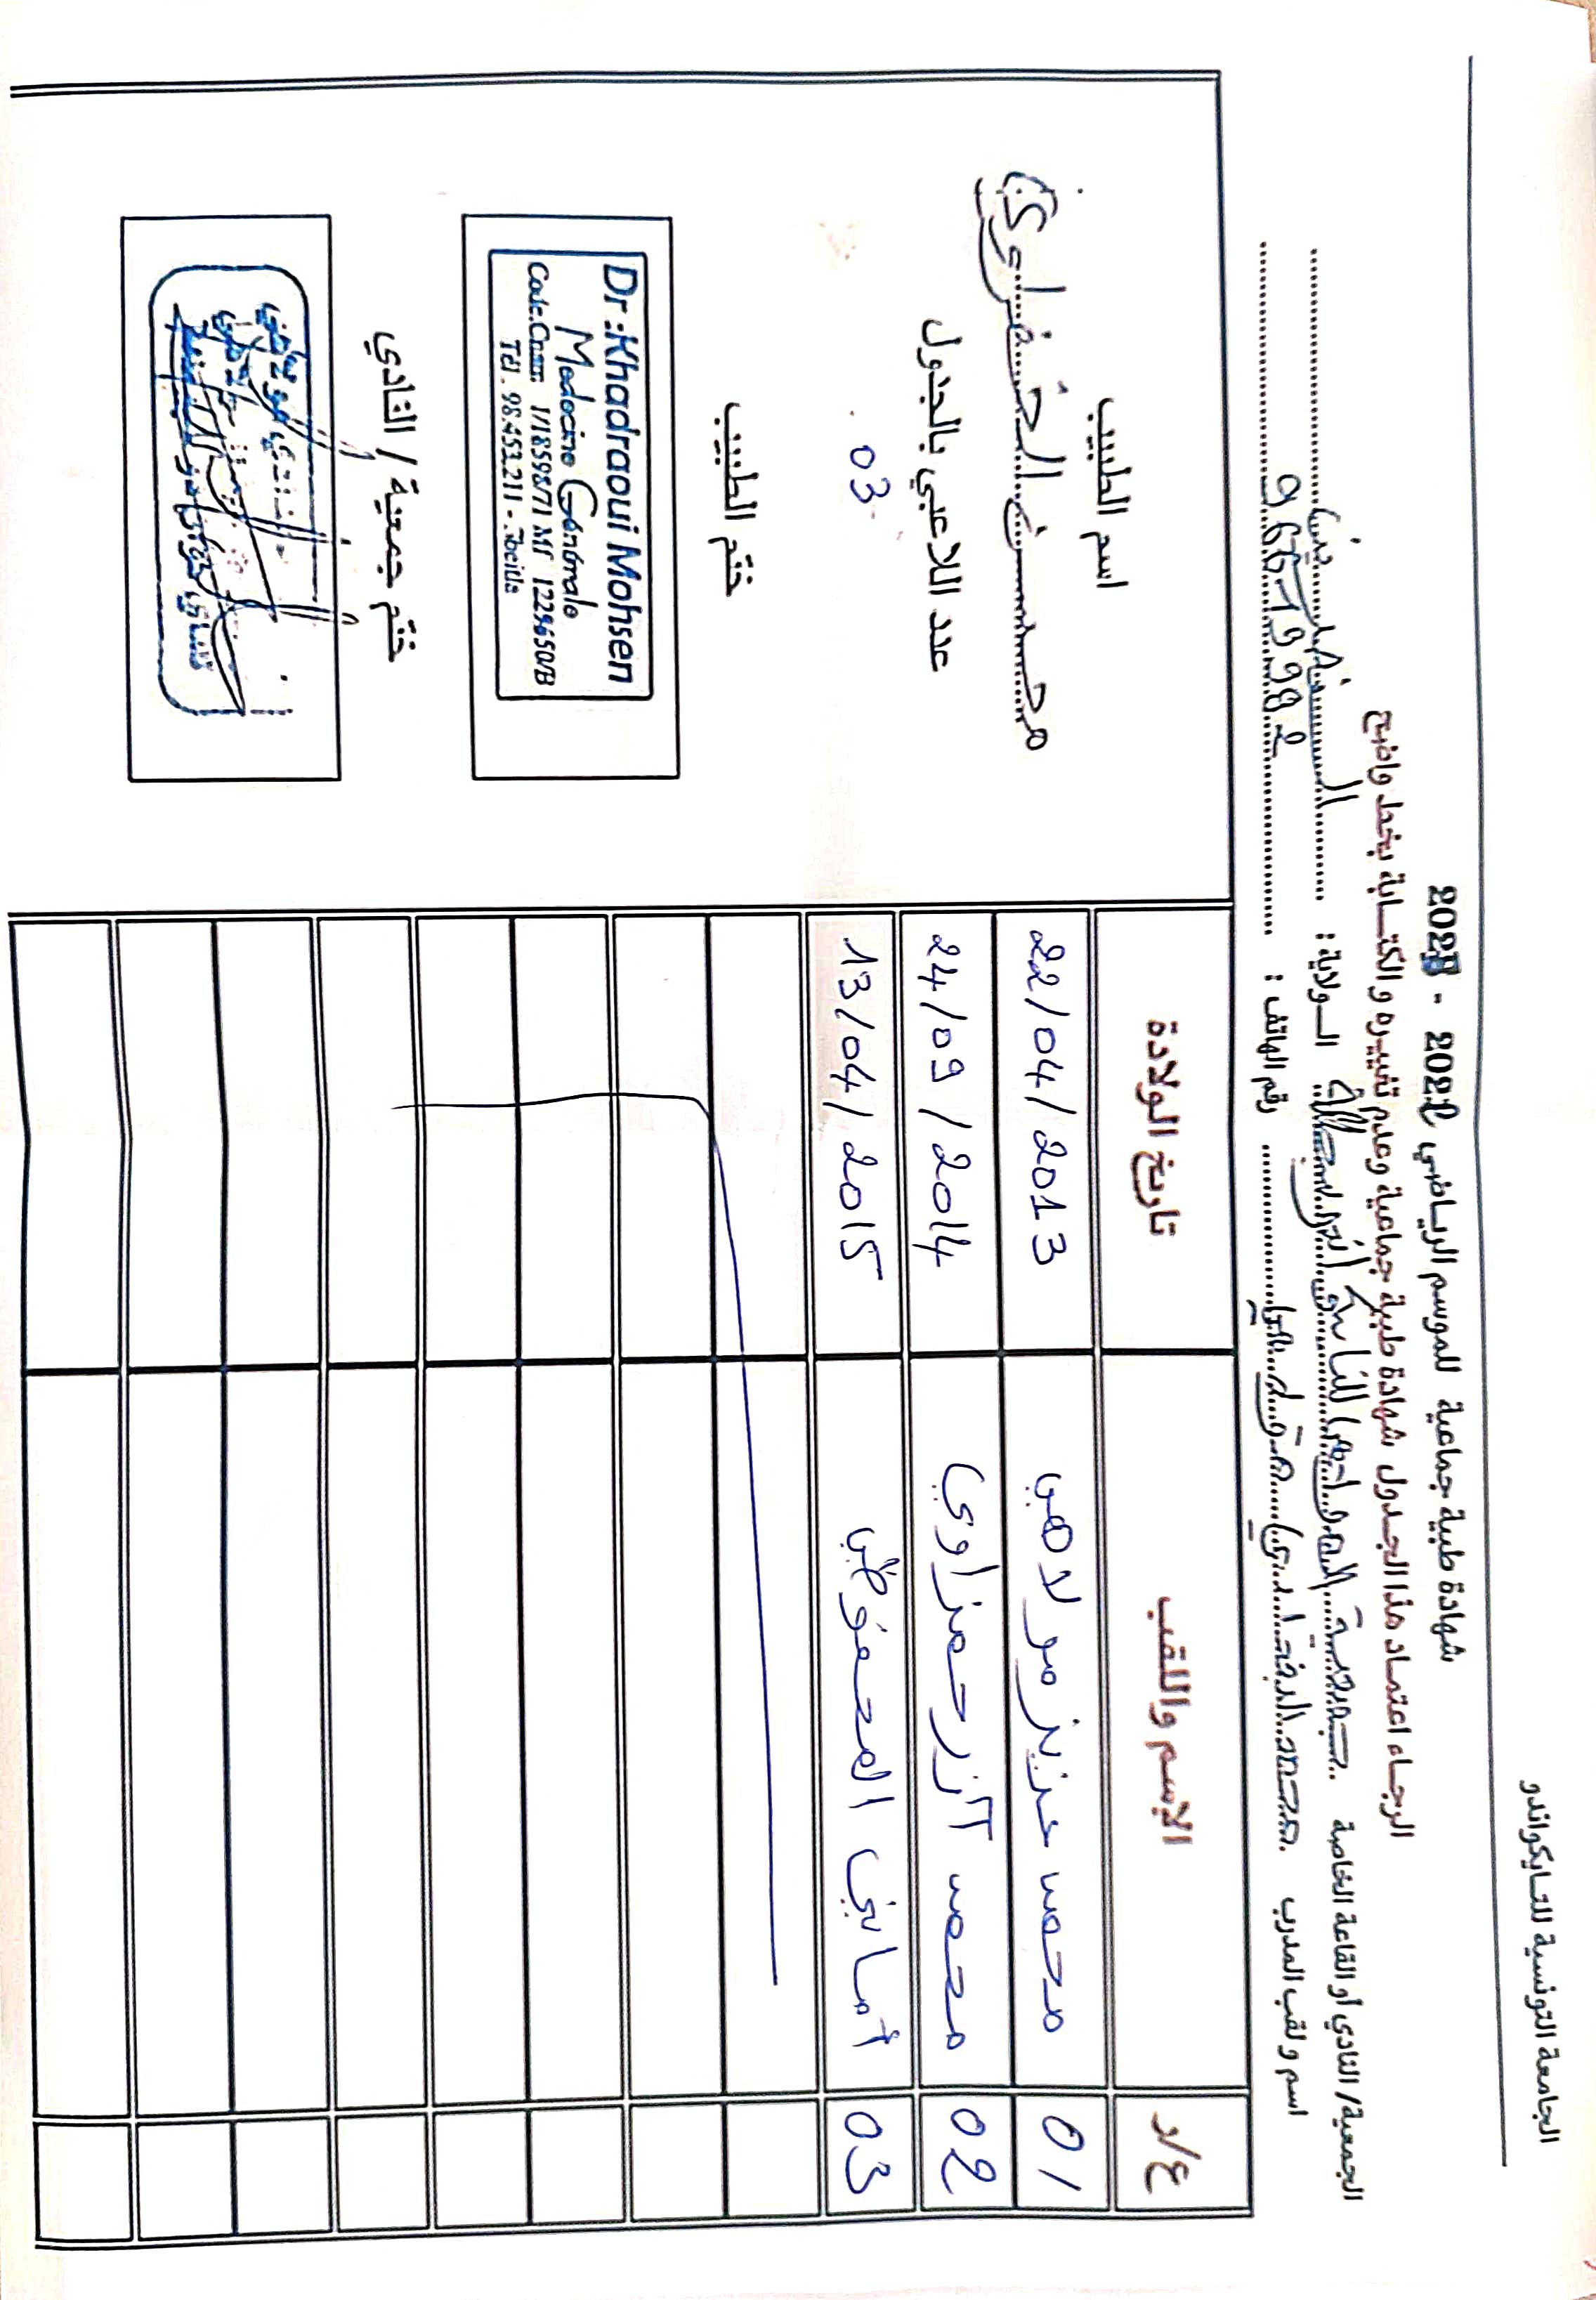 الجامعة التونسية للتايكواندو
شهادة طبية جماعية للموسم الرياضي 2022 - 2023
الرجاء اعتماد هذا الجدول شهادة طبية جماعية وعدم تغييره والكتابة بخط واضح
الجمعية/ النادي أو القاعة الخاصة جمعية الولاية :
اسم و لقب المدرب محمد رقم الهاتف :
ع/د الإسم واللقب تاريخ الولادة
01 محمد عزيز مولاهي 22/04/2013
02 محمد آزر حمزاوي 24/09/2014
03 أماني المحفوظي 13/04/2015
اسم الطبيب
محسن الخضراوي
عدد اللاعبي بالجدول
03
ختم الطبيب
Dr :Khadraoui Mohsen
Medecine Génerale
Code.Cnam 1/18598/71 Mf 1229650/B
Tél. 98.453.211 - Sbeitla
ختم جمعية / النادي